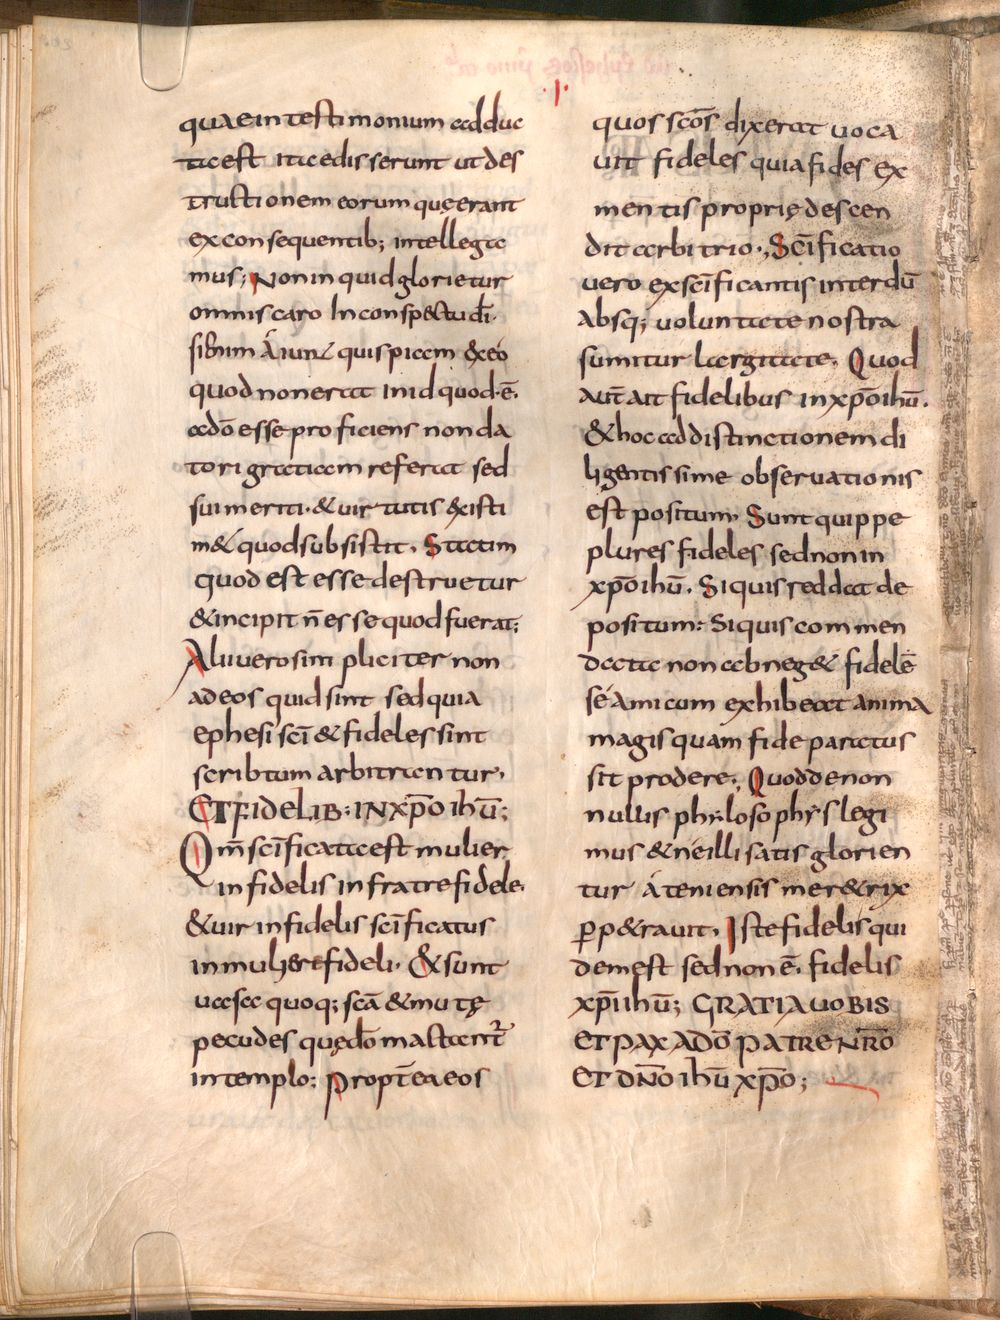 ·I·
quae in testimonium adduc
ta est ita edisserunt ut des
tructionem eorum quę erant
ex consequentib; intellega
mus; Non in quid glorietur
omnis caro In conspectu di·
si enim aiunt quispiam & eo
quod non erat in id quod·ē·
a dō esse proficiens non da
tori gratiam referat sed
sui meriti·& uirtutis existi
m& quod subsistit· Statim
quod est esse destruetur
& incipit ñ esse quod fuerat;
Alii uero simpliciter non
ad eos quid sint sed quia
ephesi sc̄i & fideles sint
scribtum arbitrantur·
ET FIDELIB: IN XP̄O IHŪ;
Qm̄ sc̄ificata est mulier
infidelis in fratre fidele·
& uir infidelis sc̄ificatus
in muliere fideli· & sunt
uasa quoq; sc̄a & mutę
pecudes quędō mactant᷑
in templo; Propterea eos
quos sc̄os dixerat uoca
uit fideles quia fides ex
mentis proprię descen
dit arbitrio·; Sc̄ificatio
uero ex sc̄ificantis interdū
absq; uoluntate nostra
sumitur largitate· Quod
aut̄ ait fidelibus in xp̄o ihū·
& hoc ad distinctionem di
ligentissime obseruationis
est positum· Sunt quippe
plures fideles sed non in
xp̄o ihū· Si quis reddat de
positum: Si quis commen
data non abneg& fidelē
se amicum exhibeat anima
magis quam fide paratus
sit prodere·; Quod de non
nullis phylosophys legi
mus & ne illi satis glorien
tur ateniensis mer&rix
ꝑp&rauit· Iste fidelis qui
dem est sed non ē· fidelis
xp̄i ihū; GRATIA UOBIS
ET PAX A DŌ PATRE NR̄O
ET DN̄O IHŪ XP̄O;